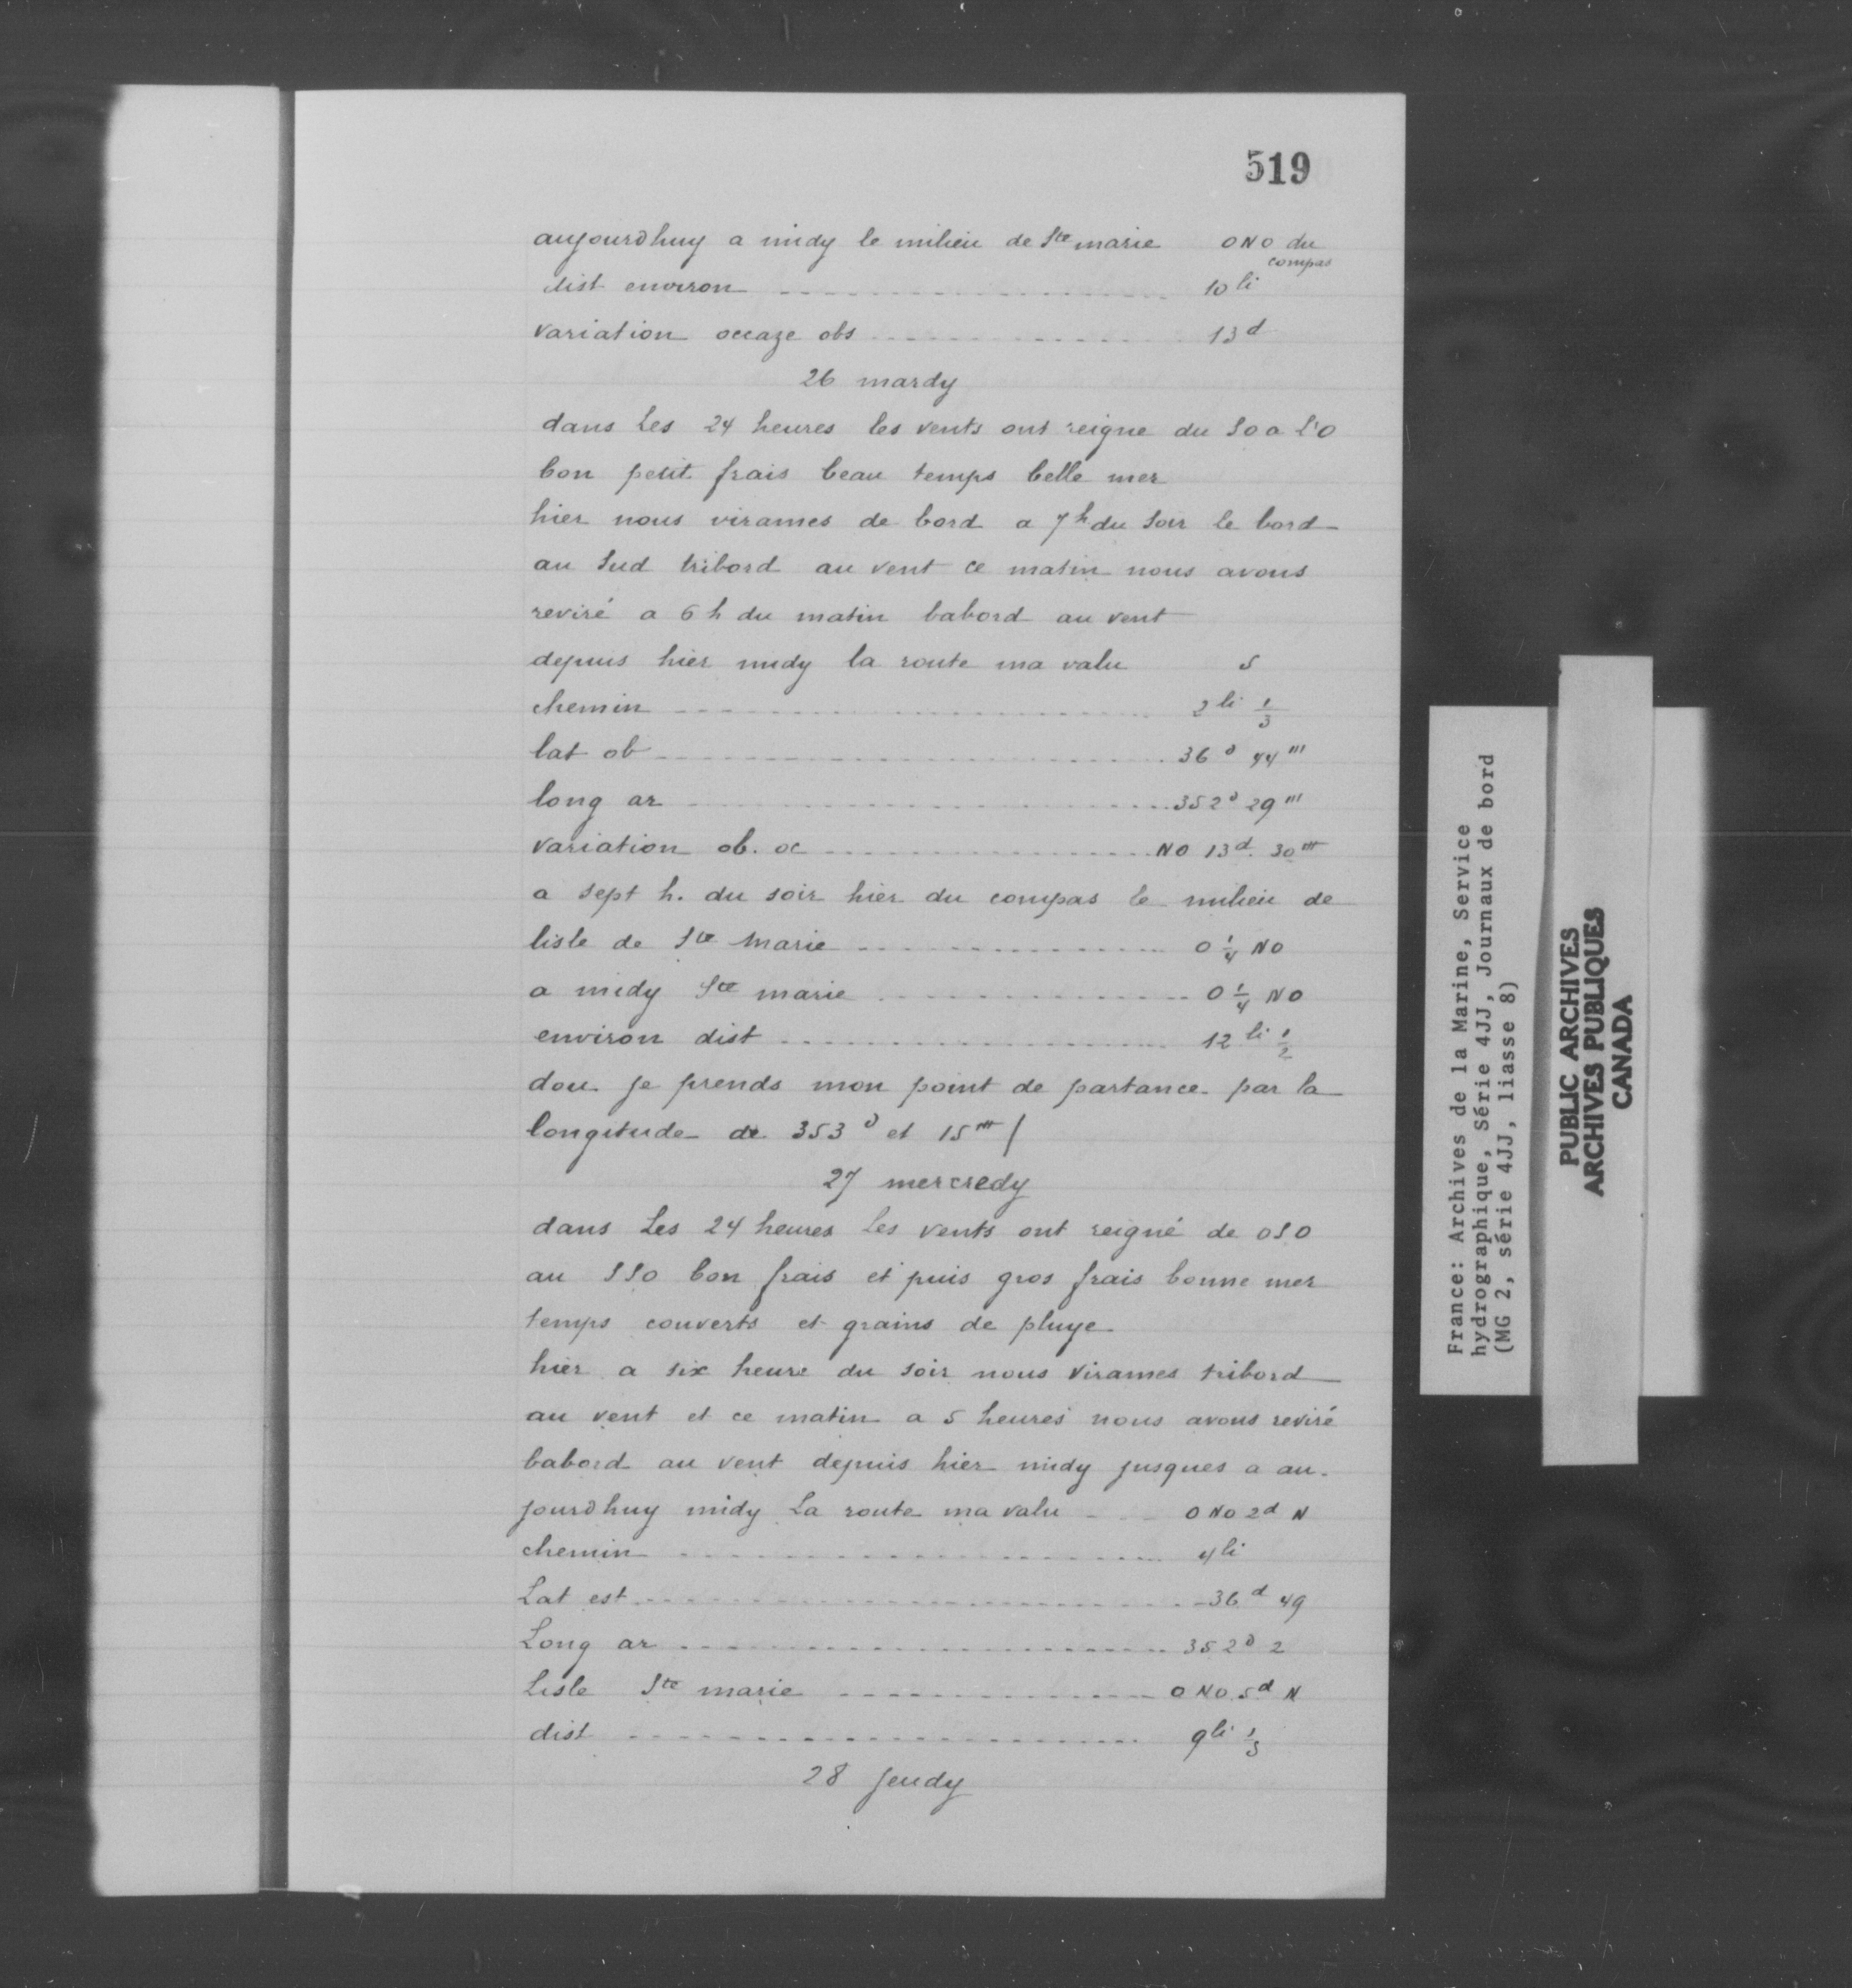 519
aujourdhuy a midy le milieu de Ste marie ONO du compas
dist environ 10 li
variation occaze obs 13 d
26 mardy
dans Les 24 heures les vents ont reigne du SO a L'O
bon petit frais beau temps belle mer
hier nous virames de bord a 7 h du soir le bord
au Sud tribord au vent ce matin nous avons
reviré a 6 h du matin babord au vent
depuis hier midy la route ma valu S
chemin 2 li 1/3
lat ob 36 d 44 m
long ar 352 d 29 m
variation ob. oc NO 13 d. 30 m
a sept h. du soir hier du compas le milieu de
lisle de Ste Marie O 1/4 NO
a midy Ste marie O 1/4 NO
environ dist 12 li 1/2
dou je prends mon point de partance par la
longitude de 353 d et 15 m /
27 mercredy
dans Les 24 heures Les vents ont reigné de OSO
au SSO bon frais et puis gros frais bonne mer
temps couverts et grains de pluye
hier a six heure du soir nous virames tribord
au vent et ce matin a 5 heures nous avons reviré
babord au vent depuis hier midy jusques a au-
jourdhuy midy La route ma valu ONO 2d N
chemin 4 li
Lat est 36 d 49
Long ar 352 d 2
Lisle Ste marie ONO 5d N
dist 9 li 1/3
28 Jeudy
France: Archives de la Marine, Service
hydrographique, Série 4JJ, Journaux de bord
(MG 2, série 4JJ, liasse 8)
PUBLIC ARCHIVES
ARCHIVES PUBLIQUES
CANADA